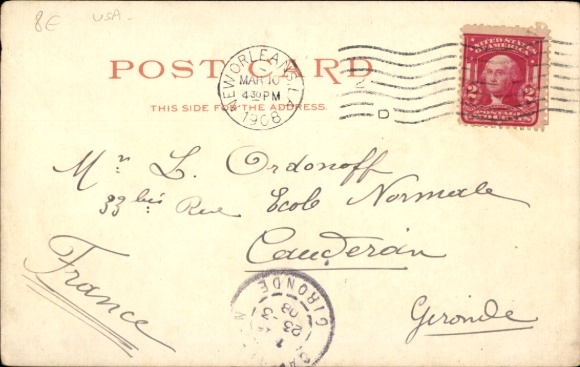 8E USA.
POST CARD
THIS SIDE FOR THE ADDRESS.
NEW ORLEANS, LA.
MAR 10
4-30 PM
1908
D
UNITED STATES
OF AMERICA
2 2
Mr L. Ordonoff
33 bis Rue Ecole Normale
Caudéran
Gironde
France
GIRONDE
23
08